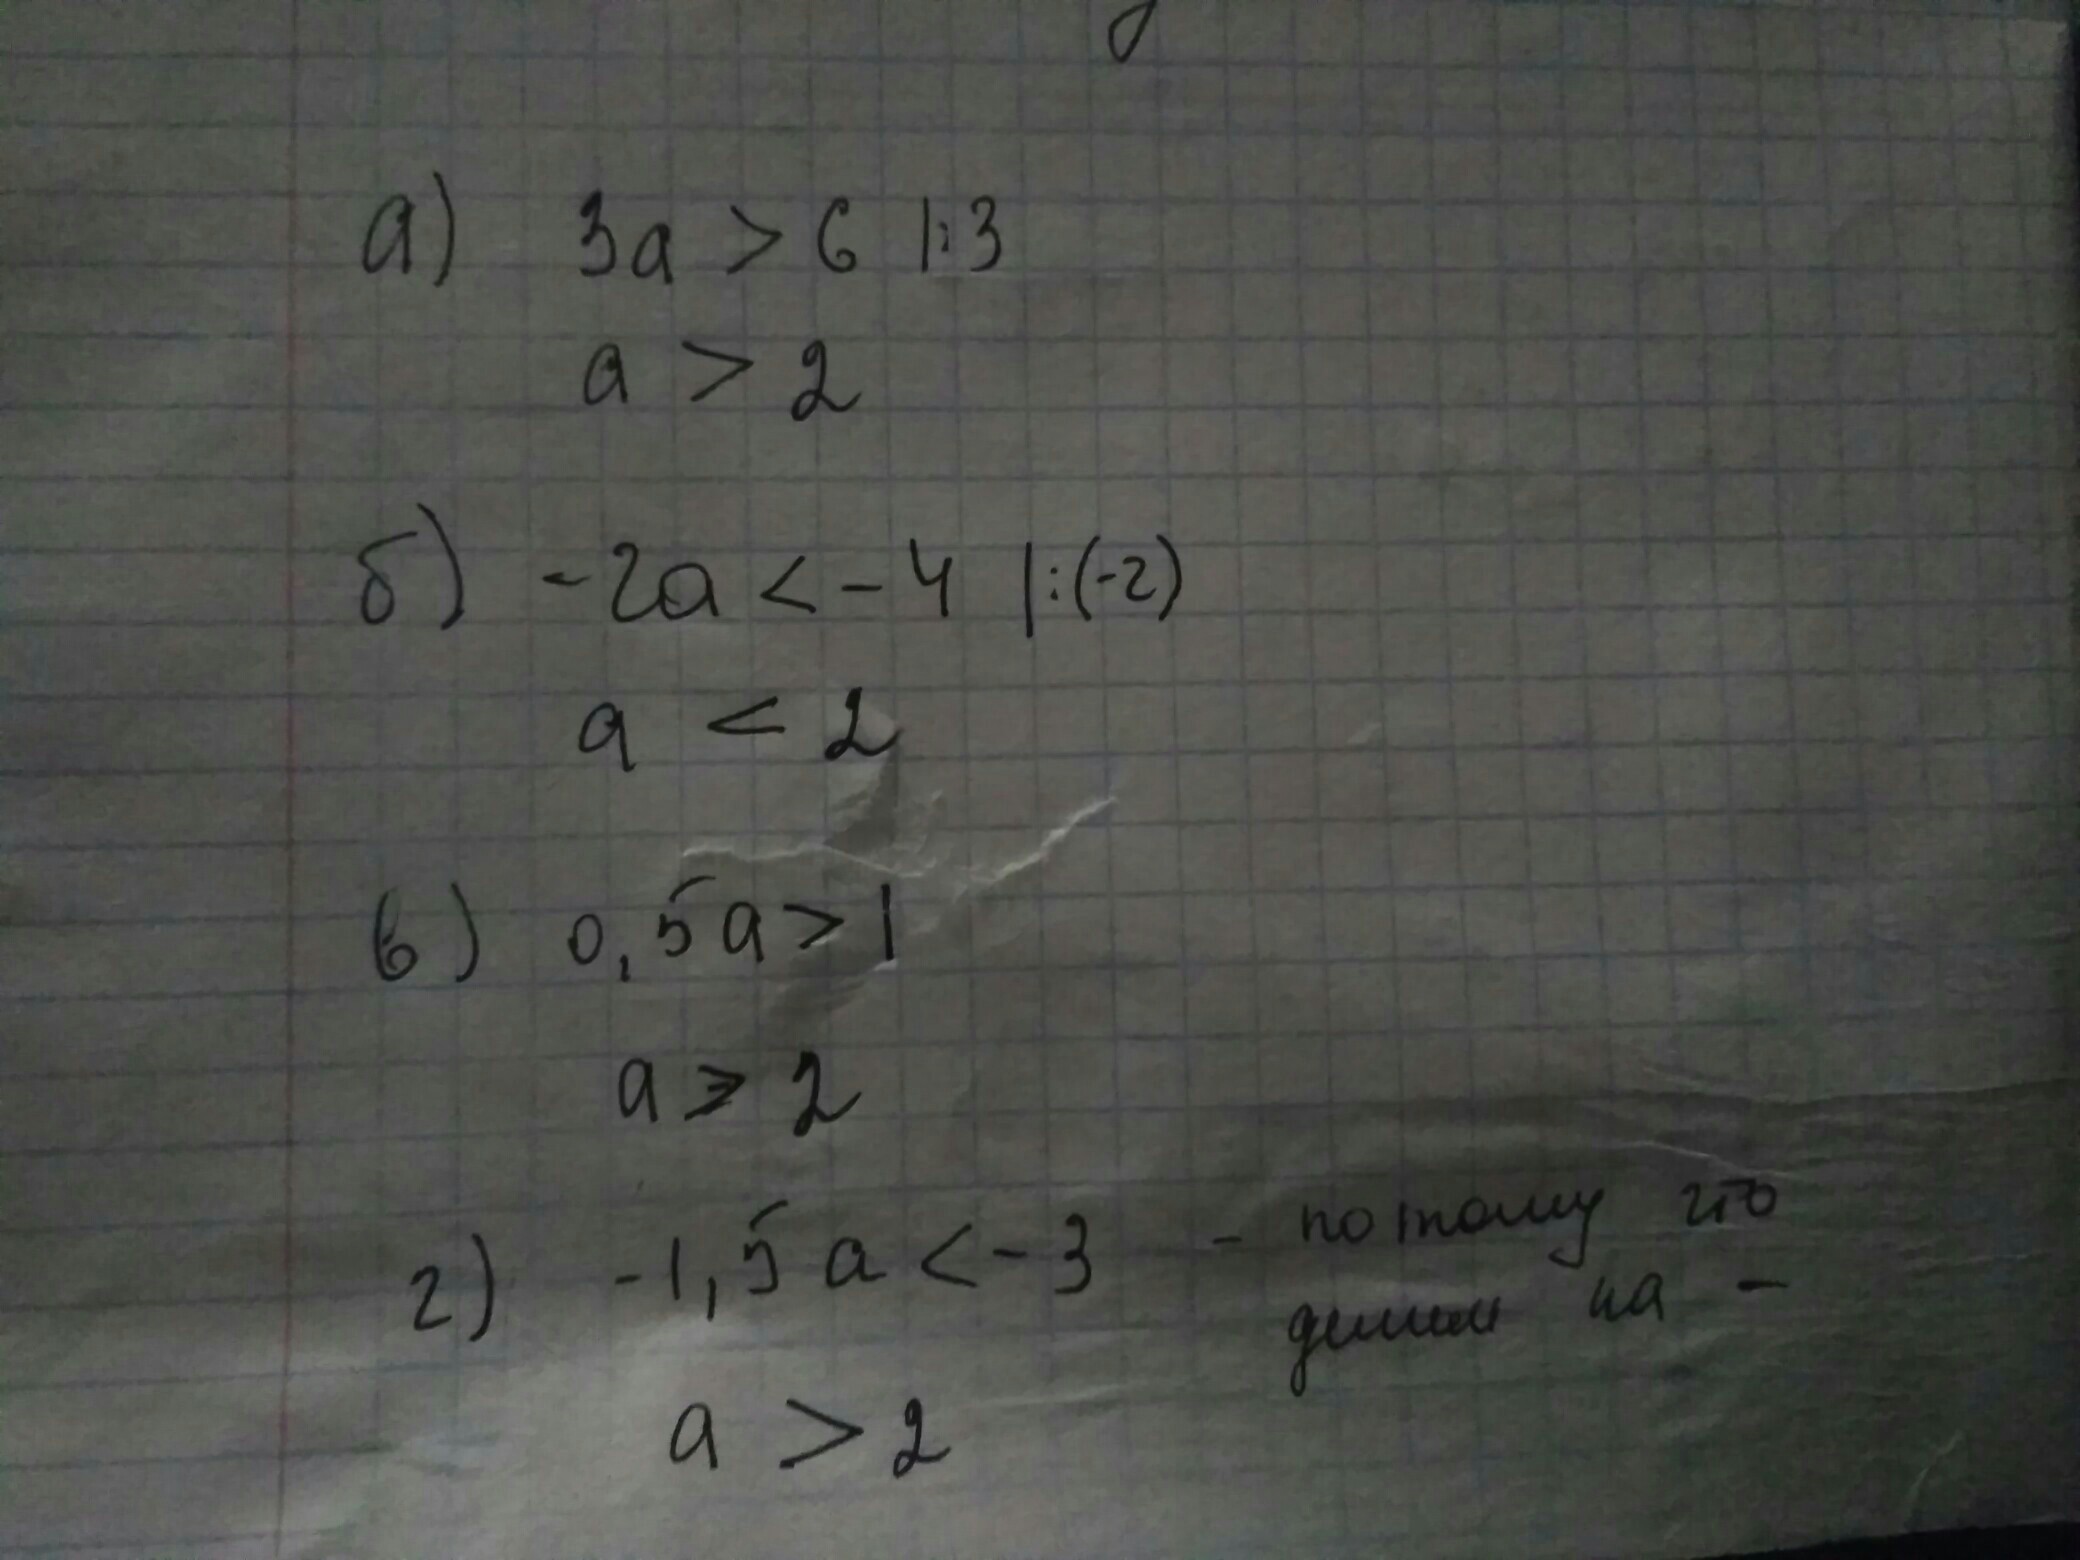 а) 3а > 6 |:3
а > 2
б) -2а < -4 |:(-2)
а < 2
в) 0,5а > 1
а > 2
г) -1,5а < -3 - потому что
делим на -
а > 2